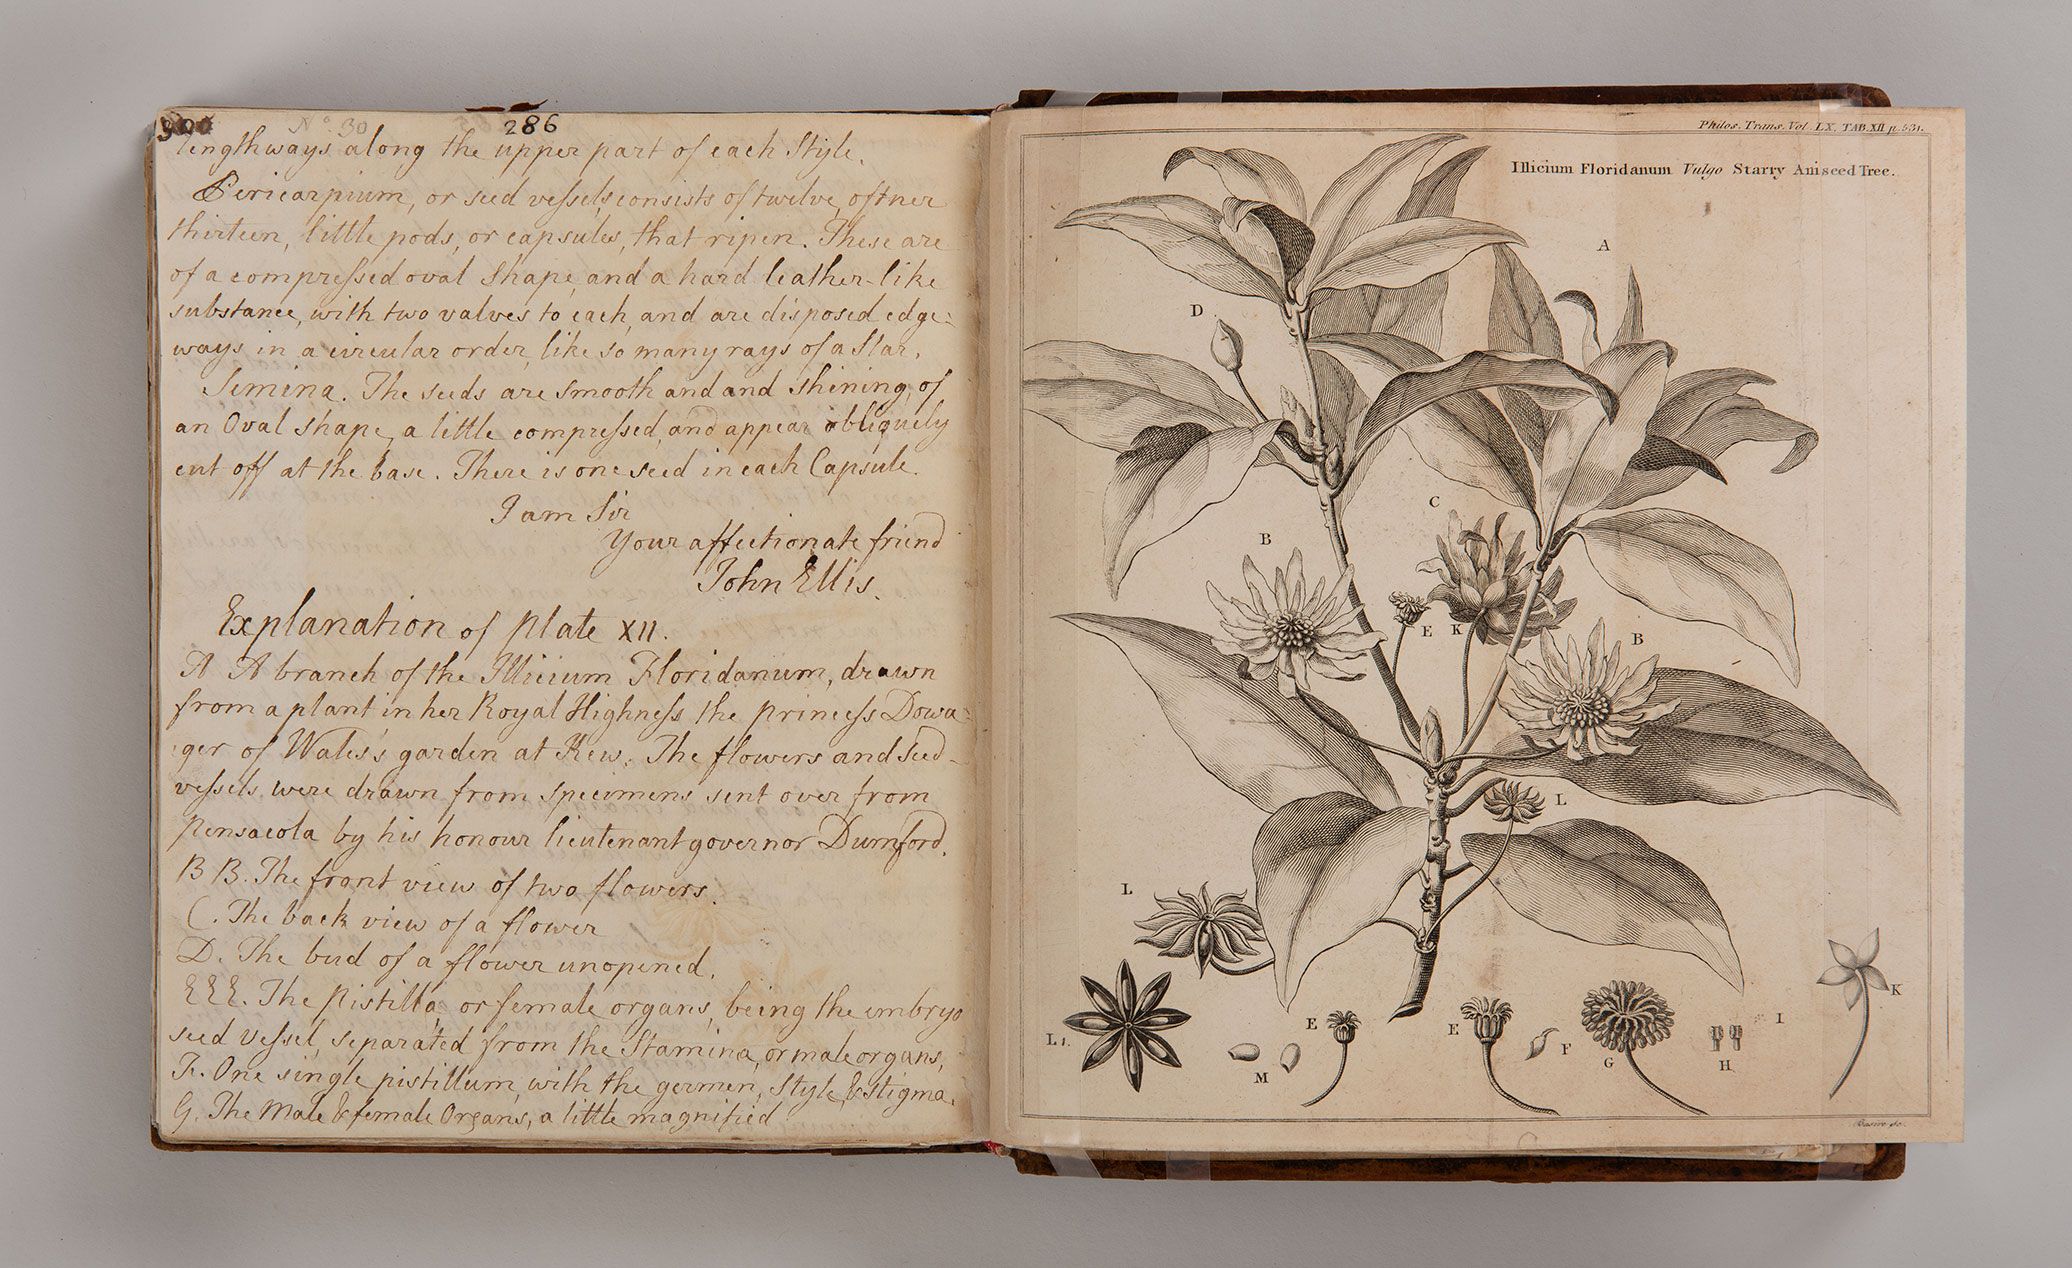 300 No. 30 286
lengthways along the upper part of each Style.
Pericarpium, or seed vessels consists of twelve, oftner
thirteen, little pods, or capsules, that ripen. These are
of a compressed oval shape, and a hard leather-like
substance, with two valves to each, and are disposed edge:
ways in a circular order, like so many rays of a Star.
Semina. The seeds are smooth and and shining, of
an Oval shape, a little compressed, and appear obliquely
cut off at the base. There is one seed in each Capsule.
I am Sir
Your affectionate friend
John Ellis.
Explanation of plate XII.
A A branch of the Illicium Floridanum, drawn
from a plant in her Royal Highness the princess Dowa-
ger of Wales's garden at Kew. The flowers and seed-
vessels were drawn from specimens sent over from
Pensacola by his honour lieutenant governor Durnford.
B B. The front view of two flowers.
C. The back view of a flower
D. The bud of a flower unopened.
E E E. The Pistilla, or female organs, being the embryo
seed vessel, separated from the Stamina, or male organs,
F. One single pistillum, with the germen, Style, & stigma.
G. The Male & female Organs, a little magnified
Philos. Trans. Vol. LX. TAB. XII p. 531.
Illicium Floridanum Vulgo Starry Aniseed Tree.
A
D
C
B
E K
B
L
L
K
L
E
M
E
F
G
H
I
Basire sc.